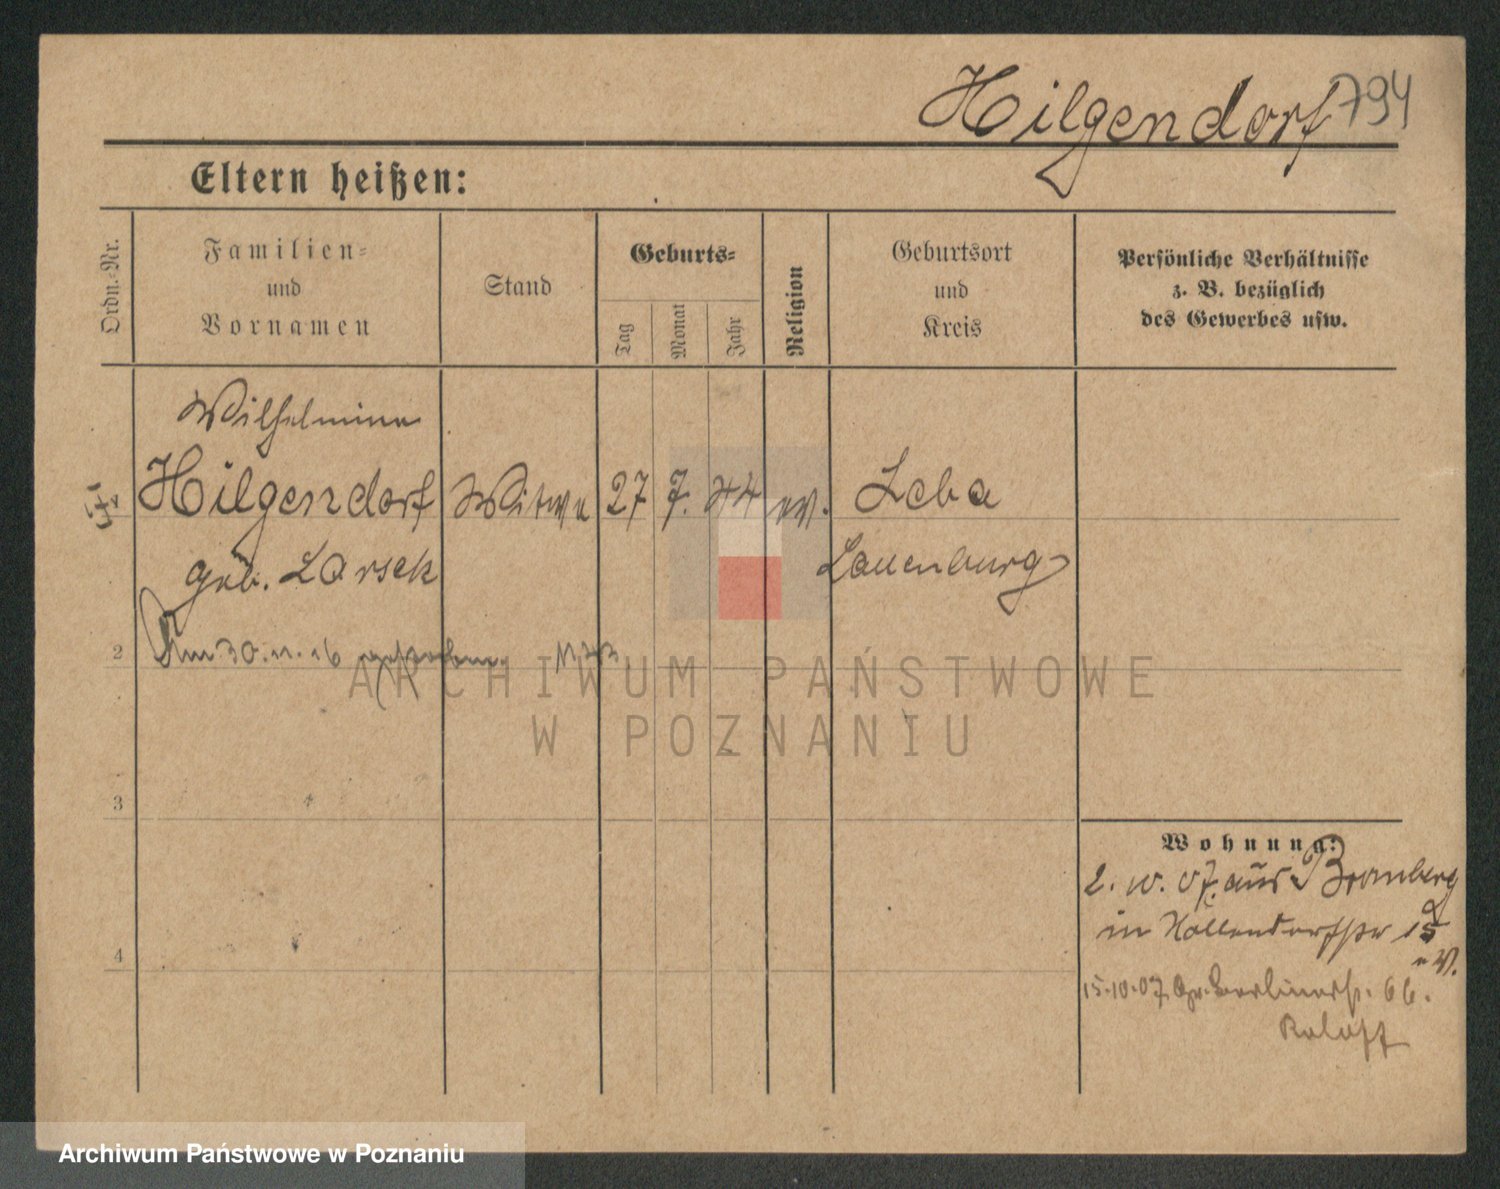 Hilgendorf 794
Eltern heißen:
Ordn.-Nr.
Familien-
und
Vornamen
Stand
Geburts-
Tag
Monat
Jahr
Religion
Geburtsort
und
Kreis
Persönliche Verhältnisse
z. B. bezüglich
des Gewerbes usw.
Wilhelmine
Hilgendorf Witwe 27 7. 44 ev. Leba
geb. Larsek Lauenburg
2 Am 30.11.16 gestorben.
3
4
Wohnung:
2. 10. 07. aus Bromberg
in Hollendorfstr 15
15.10.07. Gr. Berlinerst. 66.
Roloff
ARCHIWUM PAŃSTWOWE
W POZNANIU
Archiwum Państwowe w Poznaniu